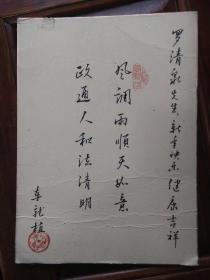 罗清泉先生新年快乐健康吉祥
风调雨顺天如意
政通人和法清明